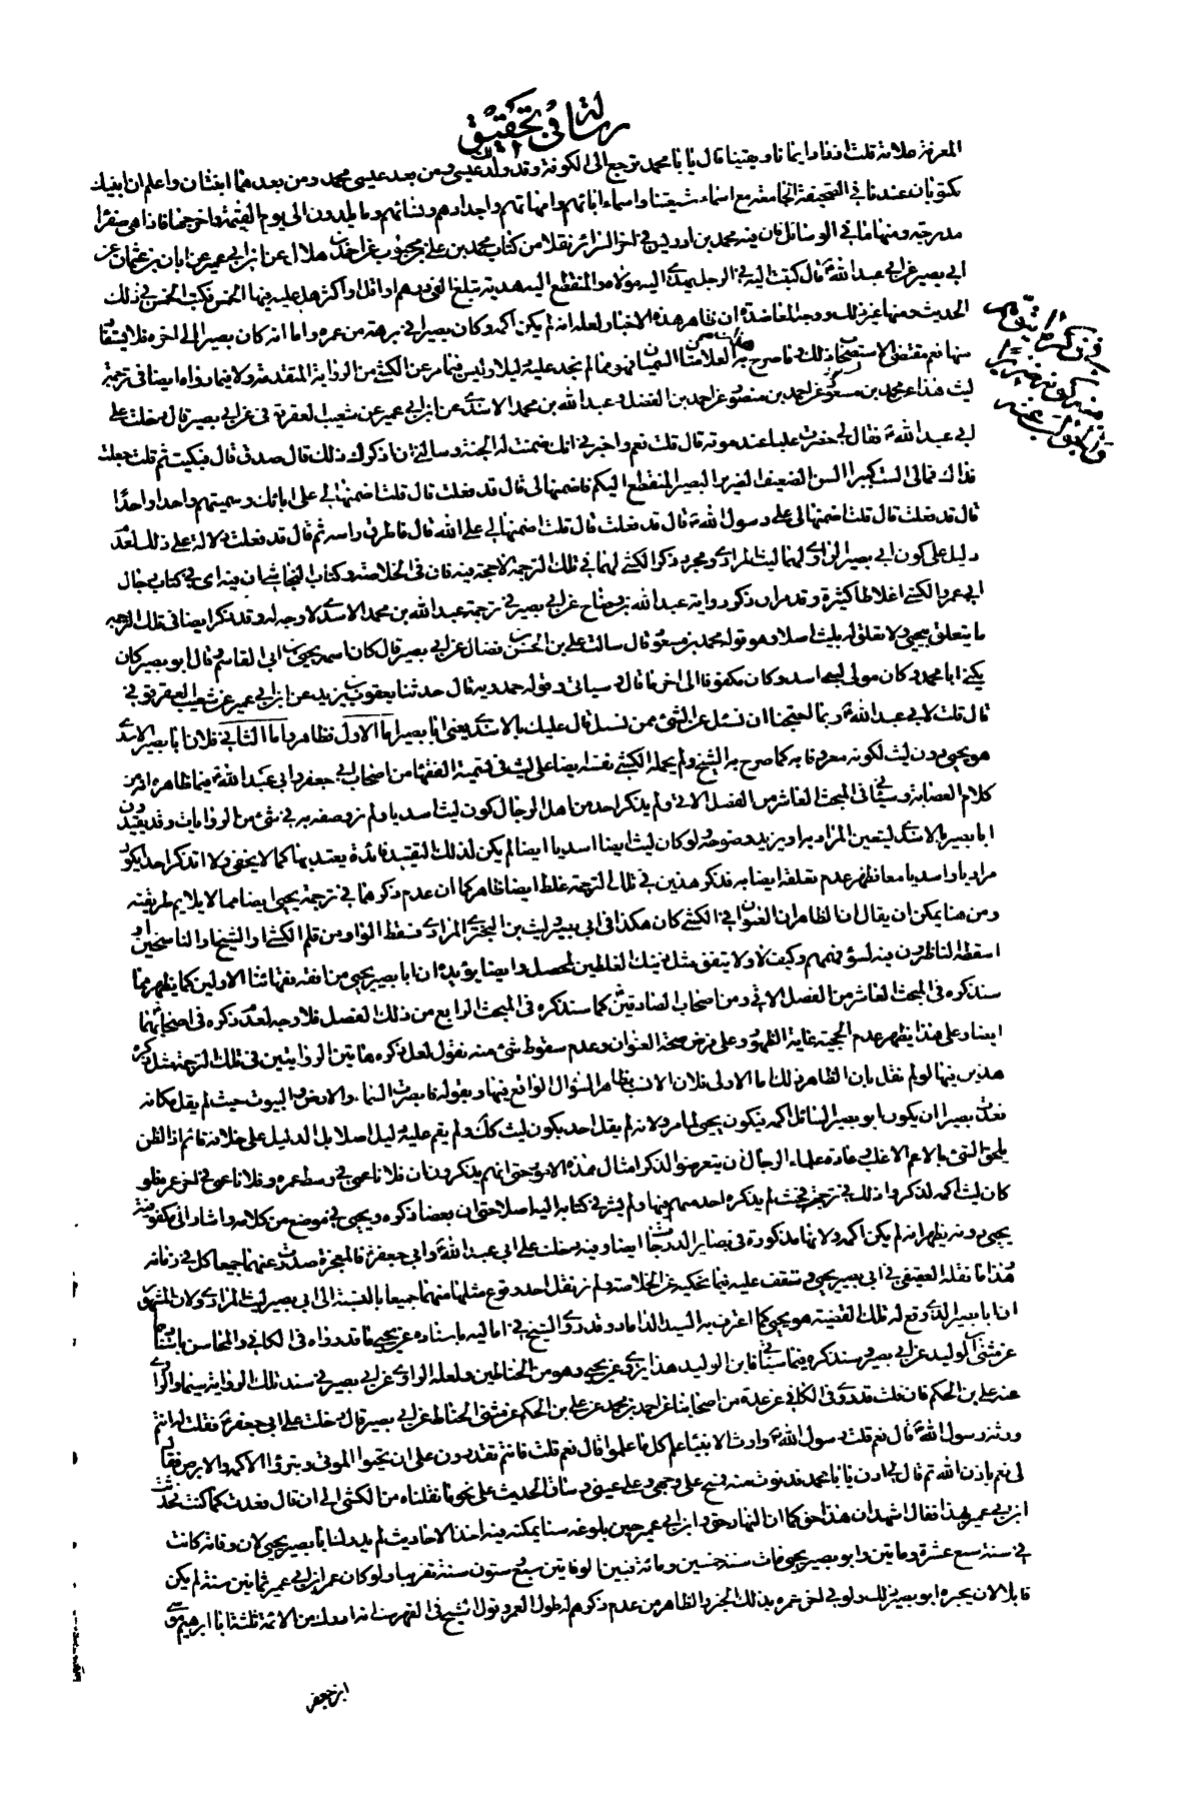 رسالة في تحقيق
المعرفة علامة قلت افعاد ايمانا ويقينا قال يا با محمد ترجع الى الكوفة وقد ولد لك عيسى ومن بعد عيسى محمد ومن بعدهما ابنتان واعلم ان ابنيك
مكتوبان عندنا في الصحيفة الجامعة مع اسماء شيعتنا واسماء ابائهم وامهاتهم واجدادهم ونسائهم وما يلدون الى يوم القيمة واخرجها فاذا هي صفراء
مدرجة ومنها ما في الوسائل فان فيه محمد بن ادريس في اخر السرائر نقلا من كتاب محمد بن علي بن محبوب عن احمد بن هلال عن ابن ابي عمير عن ابان بن عثمان عن
ابي بصير عن ابي عبد الله قال كتبت اليه في الرجل يهدي اليه مولاه والمنقطع اليه هدية تبلغ الفي درهم او اقل او اكثر هل عليه فيها الخمس فكتب الخمس في ذلك
الحديث ومنها غير ذلك ووجه المعاضدة ان ظاهر هذه الاخبار لعله انه لم يكن اكمه وكان بصيرا في برهة من عمره واما انه كان بصيرا الى اخره فلا يستفاد
منها نعم مقتضى الاستصحاب ذلك فما صرح به العلامتان السميان فهو مما لم نجد عليه دليلا وليس فيما مر عن الكشي من الرواية المتقدمة ولا فيما رواه ايضا في ترجمة
ليث هذا عن محمد بن مسعود عن احمد بن منصور عن احمد بن الفضل وعبد الله بن محمد الاسدي عن ابن ابي عمير عن شعيب العقرقوفي عن ابي بصير قال دخلت على
ابي عبد الله فقال لي حضرت علباء عند موته قال قلت نعم واخبرني انك ضمنت له الجنة وسالني ان اذكرك ذلك قال صدق قال فبكيت ثم قلت جعلت
فداك فمالي الست كبير السن الضعيف الضرير البصير المنقطع اليكم فاضمنها لي قال قد فعلت قال قلت اضمنها لي على ابائك وسميتهم واحدا واحدا
قال قد فعلت قال قلت اضمنها لي على رسول الله قال قد فعلت قال قلت اضمنها لي على الله قال فاطرق راسه ثم قال قد فعلت دلالة على ذلك لعدم
دليل على كون ابي بصير الراوي لهما ليث المرادي ومجرد ذكر الكشي لهما في تلك الترجمة لا حجة فيه فان في الخلاصة وكتاب النجاشي ان فيه اي في كتاب رجال
ابي عمرو الكشي اغلاطا كثيرة وقد مر ان ذكر رواية عبد الله بن وضاح عن ابي بصير في ترجمة عبد الله بن محمد الاسدي لا وجه له وقد ذكر ايضا في تلك الترجمة
ما يتعلق بيحيى ولا تعلق له بليث اصلا وهو قوله محمد بن مسعود قال سالت علي بن الحسن بن فضال عن ابي بصير قال كان اسمه يحيى بن ابي القاسم وقال ابو بصير كان
يكنى ابا محمد وكان مولى لبني اسد وكان مكفوفا الى اخر ما قال وسياتي وقوله حمدويه قال حدثنا يعقوب بن يزيد عن ابن ابي عمير عن شعيب العقرقوفي
قال قلت لابي عبد الله ربما احتجنا ان نسئل عن الشئ فمن نسئل قال عليك بالاسدي يعني ابا بصير اما الاول فظاهر واما الثاني فلان ابا بصير الاسدي
هو يحيى دون ليث لكونه معروفا به كما صرح به الشيخ ولم يحمله الكشي نفسه ايضا على ليث في تسمية الفقهاء من اصحاب ابي جعفر وابي عبد الله فيما ظاهره انه من
كلام العصابة وسياتي في المبحث العاشر من الفصل الاتي ولم يذكر احد من اهل الرجال كون ليث اسديا ولم نر وصفه به في شئ من الروايات وقد يقيدون
ابا بصير بالاسدي ليتعين المراد به او يزيد وضوحه ولو كان ليث ايضا اسديا ايضا لم يكن لذلك التقييد فائدة يعتد بها كما لا يخفى ولا اقتدكر احد يكون
مراديا واسديا معا فظهر عدم تعلقه ايضا به فذكر هذين في تلك الترجمة غلط ايضا ظاهر كما ان عدم ذكرهما في ترجمة يحيى ايضا مما لا يلايم طريقته
ومن هنا يمكن ان يقال ان الظاهر ان العنوان في الكشي كان هكذا في ابي بصير وليث بن البختري المرادي فسقط الواو من قلم الكشي او الشيخ او الناسخين او
اسقطه الناظرون فيه لسوء فهمهم وكيف لا ولا يتفق مثل ذينك الغلطين لمحصل وايضا يؤيده ان ابا بصير يحيى من افقه فقهائنا الاولين كما يظهر مما
سنذكره في المبحث العاشر من الفصل الاتي ومن اصحاب الصادقين كما سنذكره في المبحث الرابع من ذلك الفصل فلا وجه لعدم ذكره في اصحابهما
ايضا وعلى هذا يظهر عدم الحجية غاية الظهور وعلى فرض صحة العنوان وعدم سقوط شئ منه نقول لعل ذكره هاتين الروايتين في تلك الترجمة مثل ذكره
هذين فيها لو لم نقل بان الظاهر ذلك اما الاولى فلان الانسب بظاهر السؤال الواقع فيها وبقوله فابصرت السماء والارض والبيوت حيث لم يقل مكانه
فعدت بصيرا ان يكون ابو بصير السائل اكمه فيكون يحيى لما مر ولانه لم يقل احد بكون ليث كذلك ولم يقم عليه دليل اصلا بل الدليل على خلافه قائم اذ الظن
يلحق الشئ بالاعم الاغلب وعادة علماء الرجال ان يتعرضوا لذكر امثال هذه الامور حتى انهم يذكرون ان فلانا عمي في وسط عمره وفلانا عمي في اخر عمره فلو
كان ليث اكمه لذكروا ذلك في ترجمته فحيث لم يذكره احد منهم فيها ولم يشر في كتابه اليه اصلا حتى ان بعضا ذكره ويحيى في موضع من كلامه واشار الى مكفوفية
يحيى دونه يظهر انه لم يكن اكمه ولانها مذكورة في بصائر الدرجات ايضا وفيه دخلت على ابي عبد الله وابي جعفر فالمعجزة صدرت عنهما جميعا كل في زمانه
هذا ما نقله العقيقي في ابي بصير يحيى وستقف عليه فيما نحكيه عن الخلاصة ولم ار نقل احد وقوع مثلها منهما جميعا بالنسبة الى ابي بصير ليث المرادي ولان المشهور
ان ابا بصير الذي وقع له تلك القضية هو يحيى كما اعترف به السيد الداماد وقد روى الشيخ في اماليه باسناده عن يحيى ما قد رواه في الكافي والمحاسن باسناده
عن مثنى بن الوليد عن ابي بصير وسنذكره فيما سياتي فابن الوليد هذا يروي عن يحيى وهو من الحناطين ولعله الراوي عن ابي بصير في سند تلك الرواية سيما والراوي
عنه علي بن الحكم فان قلت قد روى في الكافي عن عدة من اصحابنا عن احمد بن محمد عن علي بن الحكم عن مثنى الحناط عن ابي بصير قال دخلت على ابي جعفر فقلت له انتم
ورثة رسول الله قال نعم قلت رسول الله وارث الانبياء علم كل ما علموا قال نعم قلت فانتم تقدرون على ان تحيوا الموتى وتبرؤا الاكمه والابرص فقال
لي نعم باذن الله ثم قال لي ادن يا با محمد فدنوت منه فمسح على وجهي وعلى عيني وساق الحديث على نحو ما نقلناه من الكشي الى ان قال فعدت كما كنت فحدثت
ابن ابي عمير بهذا فقال اشهد ان هذا حق كما ان النهار حق وابن ابي عمير حين بلوغه سنا يمكنه فيه اخذ الاحاديث لم يدرك ابا بصير يحيى لان وفاته كانت
في سنة سبع عشرة ومايتين وابو بصير يحيى مات سنة خمسين ومائة فبين الوفايتين سبع وستون سنة تقريبا ولو كان عمر ابن ابي عمير ثمانين سنة لم يكن
قابلا لان يخبره ابو بصير بذلك ولو في اخر عمره بذلك الخبر والظاهر من عدم ذكرهم له طول العمر وقول الشيخ في الفهرست انه ادرك من الائمة ثلثة ابا ابراهيم موسى
ابن جعفر